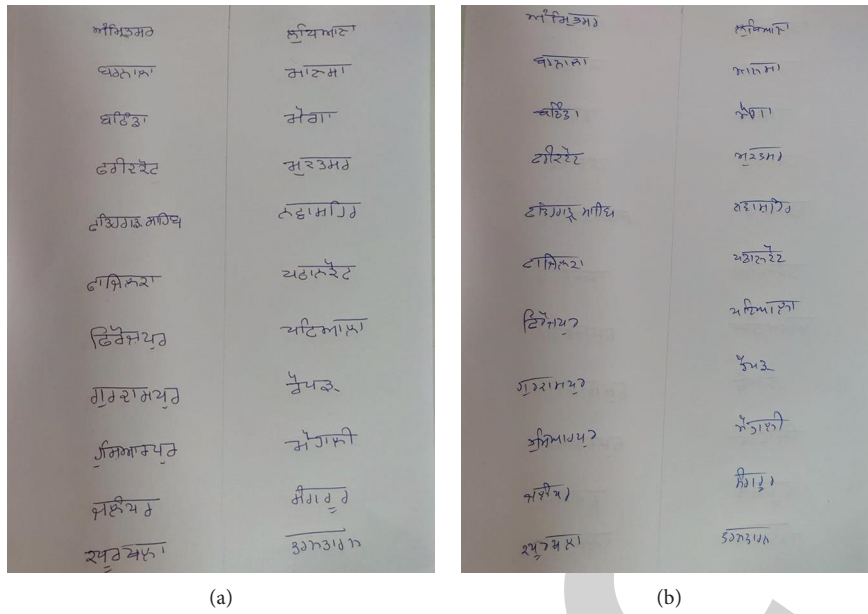 ਅੰਮ੍ਰਿਤਸਰ
ਬਰਨਾਲਾ
ਬਠਿੰਡਾ
ਫਰੀਦਕੋਟ
ਫਤਿਹਗੜ ਸਾਹਿਬ
ਫਾਜ਼ਿਲਕਾ
ਫਿਰੋਜਪੁਰ
ਗੁਰਦਾਸਪੁਰ
ਹੁਸ਼ਿਆਰਪੁਰ
ਜਲੰਧਰ
ਕਪੂਰਥਲਾ
ਲੁਧਿਆਣਾ
ਮਾਨਸਾ
ਮੋਗਾ
ਮੁਕਤਸਰ
ਨਵਾਂਸ਼ਹਿਰ
ਪਠਾਨਕੋਟ
ਪਟਿਆਲਾ
ਰੋਪੜ
ਮੋਹਾਲੀ
ਸੰਗਰੂਰ
ਤਰਨਤਾਰਨ
(a)
ਅੰਮ੍ਰਿਤਸਰ
ਬਰਨਾਲਾ
ਬਠਿੰਡਾ
ਫਰੀਦਕੋਟ
ਫਤਿਹਗੜ੍ਹ ਸਾਹਿਬ
ਫਾਜ਼ਿਲਕਾ
ਫਿਰੋਜਪੁਰ
ਗੁਰਦਾਸਪੁਰ
ਹੁਸ਼ਿਆਰਪੁਰ
ਜਲੰਧਰ
ਕਪੂਰਥਲਾ
ਲੁਧਿਆਣਾ
ਮਾਨਸਾ
ਮੋਗਾ
ਮੁਕਤਸਰ
ਨਵਾਂਸ਼ਹਿਰ
ਪਠਾਨਕੋਟ
ਪਟਿਆਲਾ
ਰੋਪੜ
ਮੋਹਾਲੀ
ਸੰਗਰੂਰ
ਤਰਨਤਾਰਨ
(b)